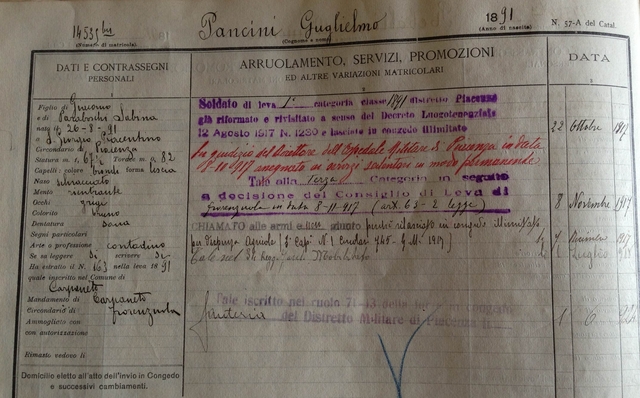 14531 bis
Pancini Guglielmo
1891
N. 57-A del Catal.
(Numero di matricola)
(Cognome e nome)
(Anno di nascita)
DATI E CONTRASSEGNI
PERSONALI
ARRUOLAMENTO, SERVIZI, PROMOZIONI
ED ALTRE VARIAZIONI MATRICOLARI
DATA
1
2
3
Figlio di Giacomo
e di Paraboschi Sabina
nato il 26-8-91
a S. Giorgio Piacentino
Circondario di Piacenza
Statura m. 1, 67 ½ Torace m. 82
Capelli: colore biondi forma liscia
Naso
Mento rientrante
Occhi grigi
Colorito bruno
Dentatura sana
Segni particolari
Arte o professione contadino
Se sa leggere di scrivere di
Ha estratto il N. 163 nella leva 1891
quale inscritto nel Comune di
Carpaneto
Mandamento di Carpaneto
Circondario di Fiorenzuola
Ammogliato con
con autorizzazione
Rimasto vedovo li
Domicilio eletto all'atto dell'invio in Congedo
e successivi cambiamenti.
Soldato di leva 1ª categoria classe 1891 distretto Piacenza
già riformato e rivisitato a senso del Decreto Luogotenenziale
12 Agosto 1917 N. 1290 e lasciato in congedo illimitato
22 Ottobre 1917
In giudizio del Direttore dell'Ospedale Militare di Piacenza in data
assegnato ai servizi sedentari in modo permanente
Tale alla Terza Categoria in seguito
a decisione del Consiglio di Leva di
Fiorenzuola in data 8-11-917 (art. 63-2 legge)
8 Novembre 1917
CHIAMATO alle armi e non giunto perché rilasciato in congedo illimitato
per dispensa Agricola
1917
Luglio
Tale iscritto nel ruolo 71-13 della
del Distretto Militare di Piacenza
fanteria
1 6